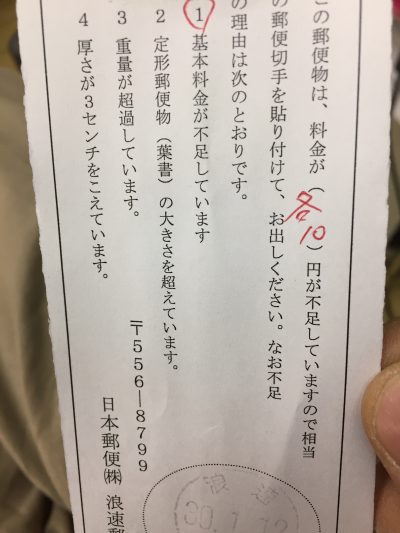 この郵便物は、料金が（各10）円が不足していますので相当
の郵便切手を貼り付けて、お出しください。なお不足
の理由は次のとおりです。
1 基本料金が不足しています
2 定形郵便物（葉書）の大きさを超えています。
3 重量が超過しています。
4 厚さが3センチをこえています。
〒556―8799
日本郵便㈱ 浪速郵
浪速
30.1.12